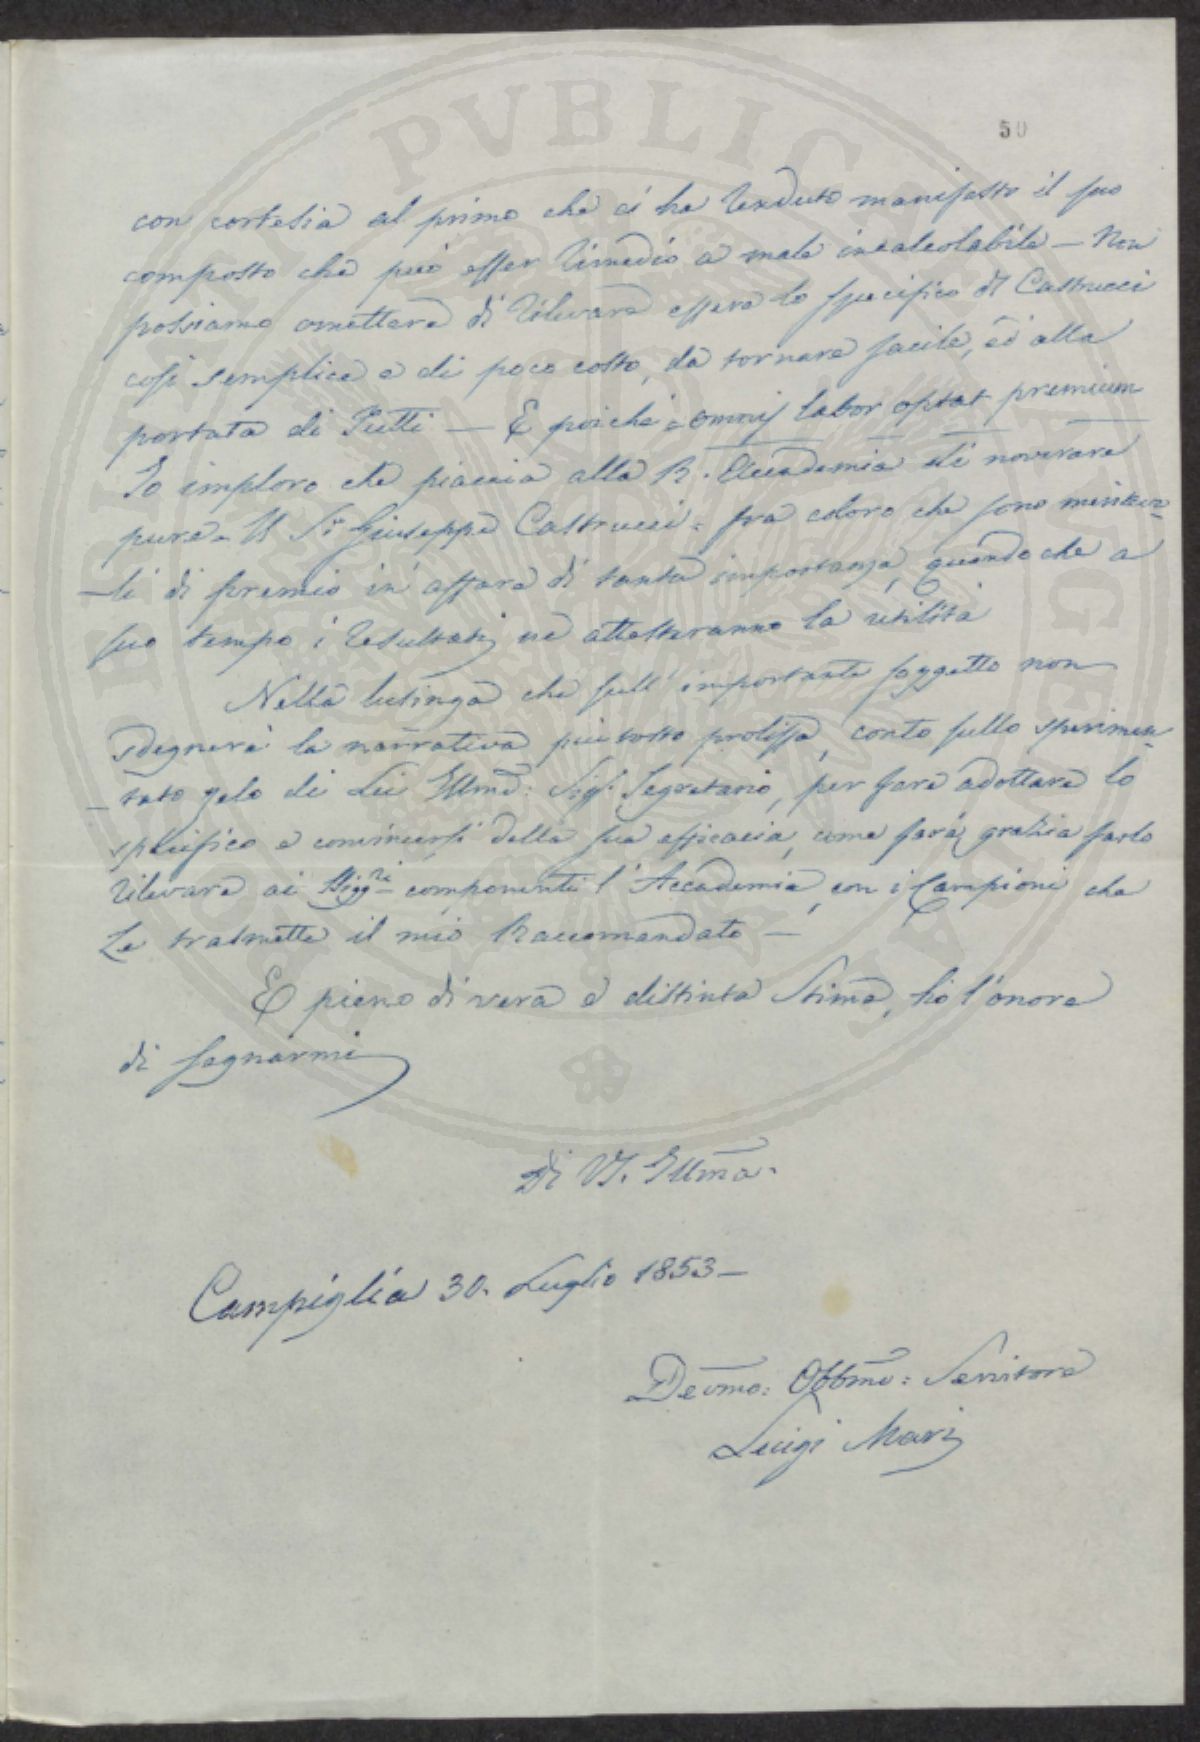 50
con cortesia al primo che ci ha renduto manifesto il suo
composto che può esser rimedio a male incalcolabile — Non
possiamo omettere di rilevare essere lo specifico di Castrucci
così semplice e di poco costo, da tornare facile, ed alla
portata di Tutti — E poiché = omnis labor optat premium
Io imploro che piaccia alla R. Accademia di noverare
pure = Il Sr. Giuseppe Castrucci = fra coloro che sono meritevo-
-li di premio in affare di tanta importanza, quando che a
suo tempo i resultati ne attesteranno la utilità
Nella lusinga che sull'importante soggetto non
sdegnerà la narrativa piuttosto prolissa, conto sullo sperimen-
-tato zelo di Lei Illmo: Sigr. Segretario, per fare adottare lo
specifico e convincersi della sua efficacia, come sarà grazia farlo
rilevare ai Siggri componenti l'Accademia, con i Campioni che
Le trasmette il mio Raccomandato —
E pieno di vera e distinta Stima, ho l'onore
di segnarmi
Di VS. Illma.
Campiglia 30. Luglio 1853 —
Devmo: Obbmo: Servitore
Luigi Mari
PVBLICA